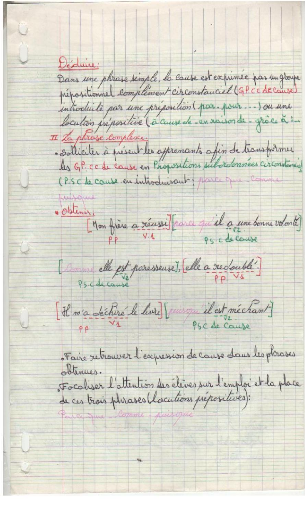 Déduire:
Dans une phrase simple, la cause est exprimée par un groupe
prépositionnel complément circonstanciel (G.P.C.C de cause)
introduite par une préposition (par. pour...) ou une
locution prépositive (à cause de - en raison de - grâce à...
II La phrase complexe:
Inciter à présent les apprenants afin de transformer
les G.P. CC de cause en Propositions subordonnées circonstancielles
(P.S.C de cause en introduisant: parce que, comme
puisque
Obtenir:
[Mon frère a réussi] [parce que il a une bonne volonté]
P.P V1 V2 P.S.C de cause
[Comme elle est paresseuse], [elle a redoublé]
P.S.C de cause P.P
[Il m'a déchiré le livre] [puisque il est méchant]
P.P V1 V2 P.S.C de Cause
Faire retrouver l'expression de cause dans les phrases
obtenues.
Focaliser l'attention des élèves sur l'emploi et la place
de ces trois phrases (locutions prépositives):
Parce que - comme - puisque